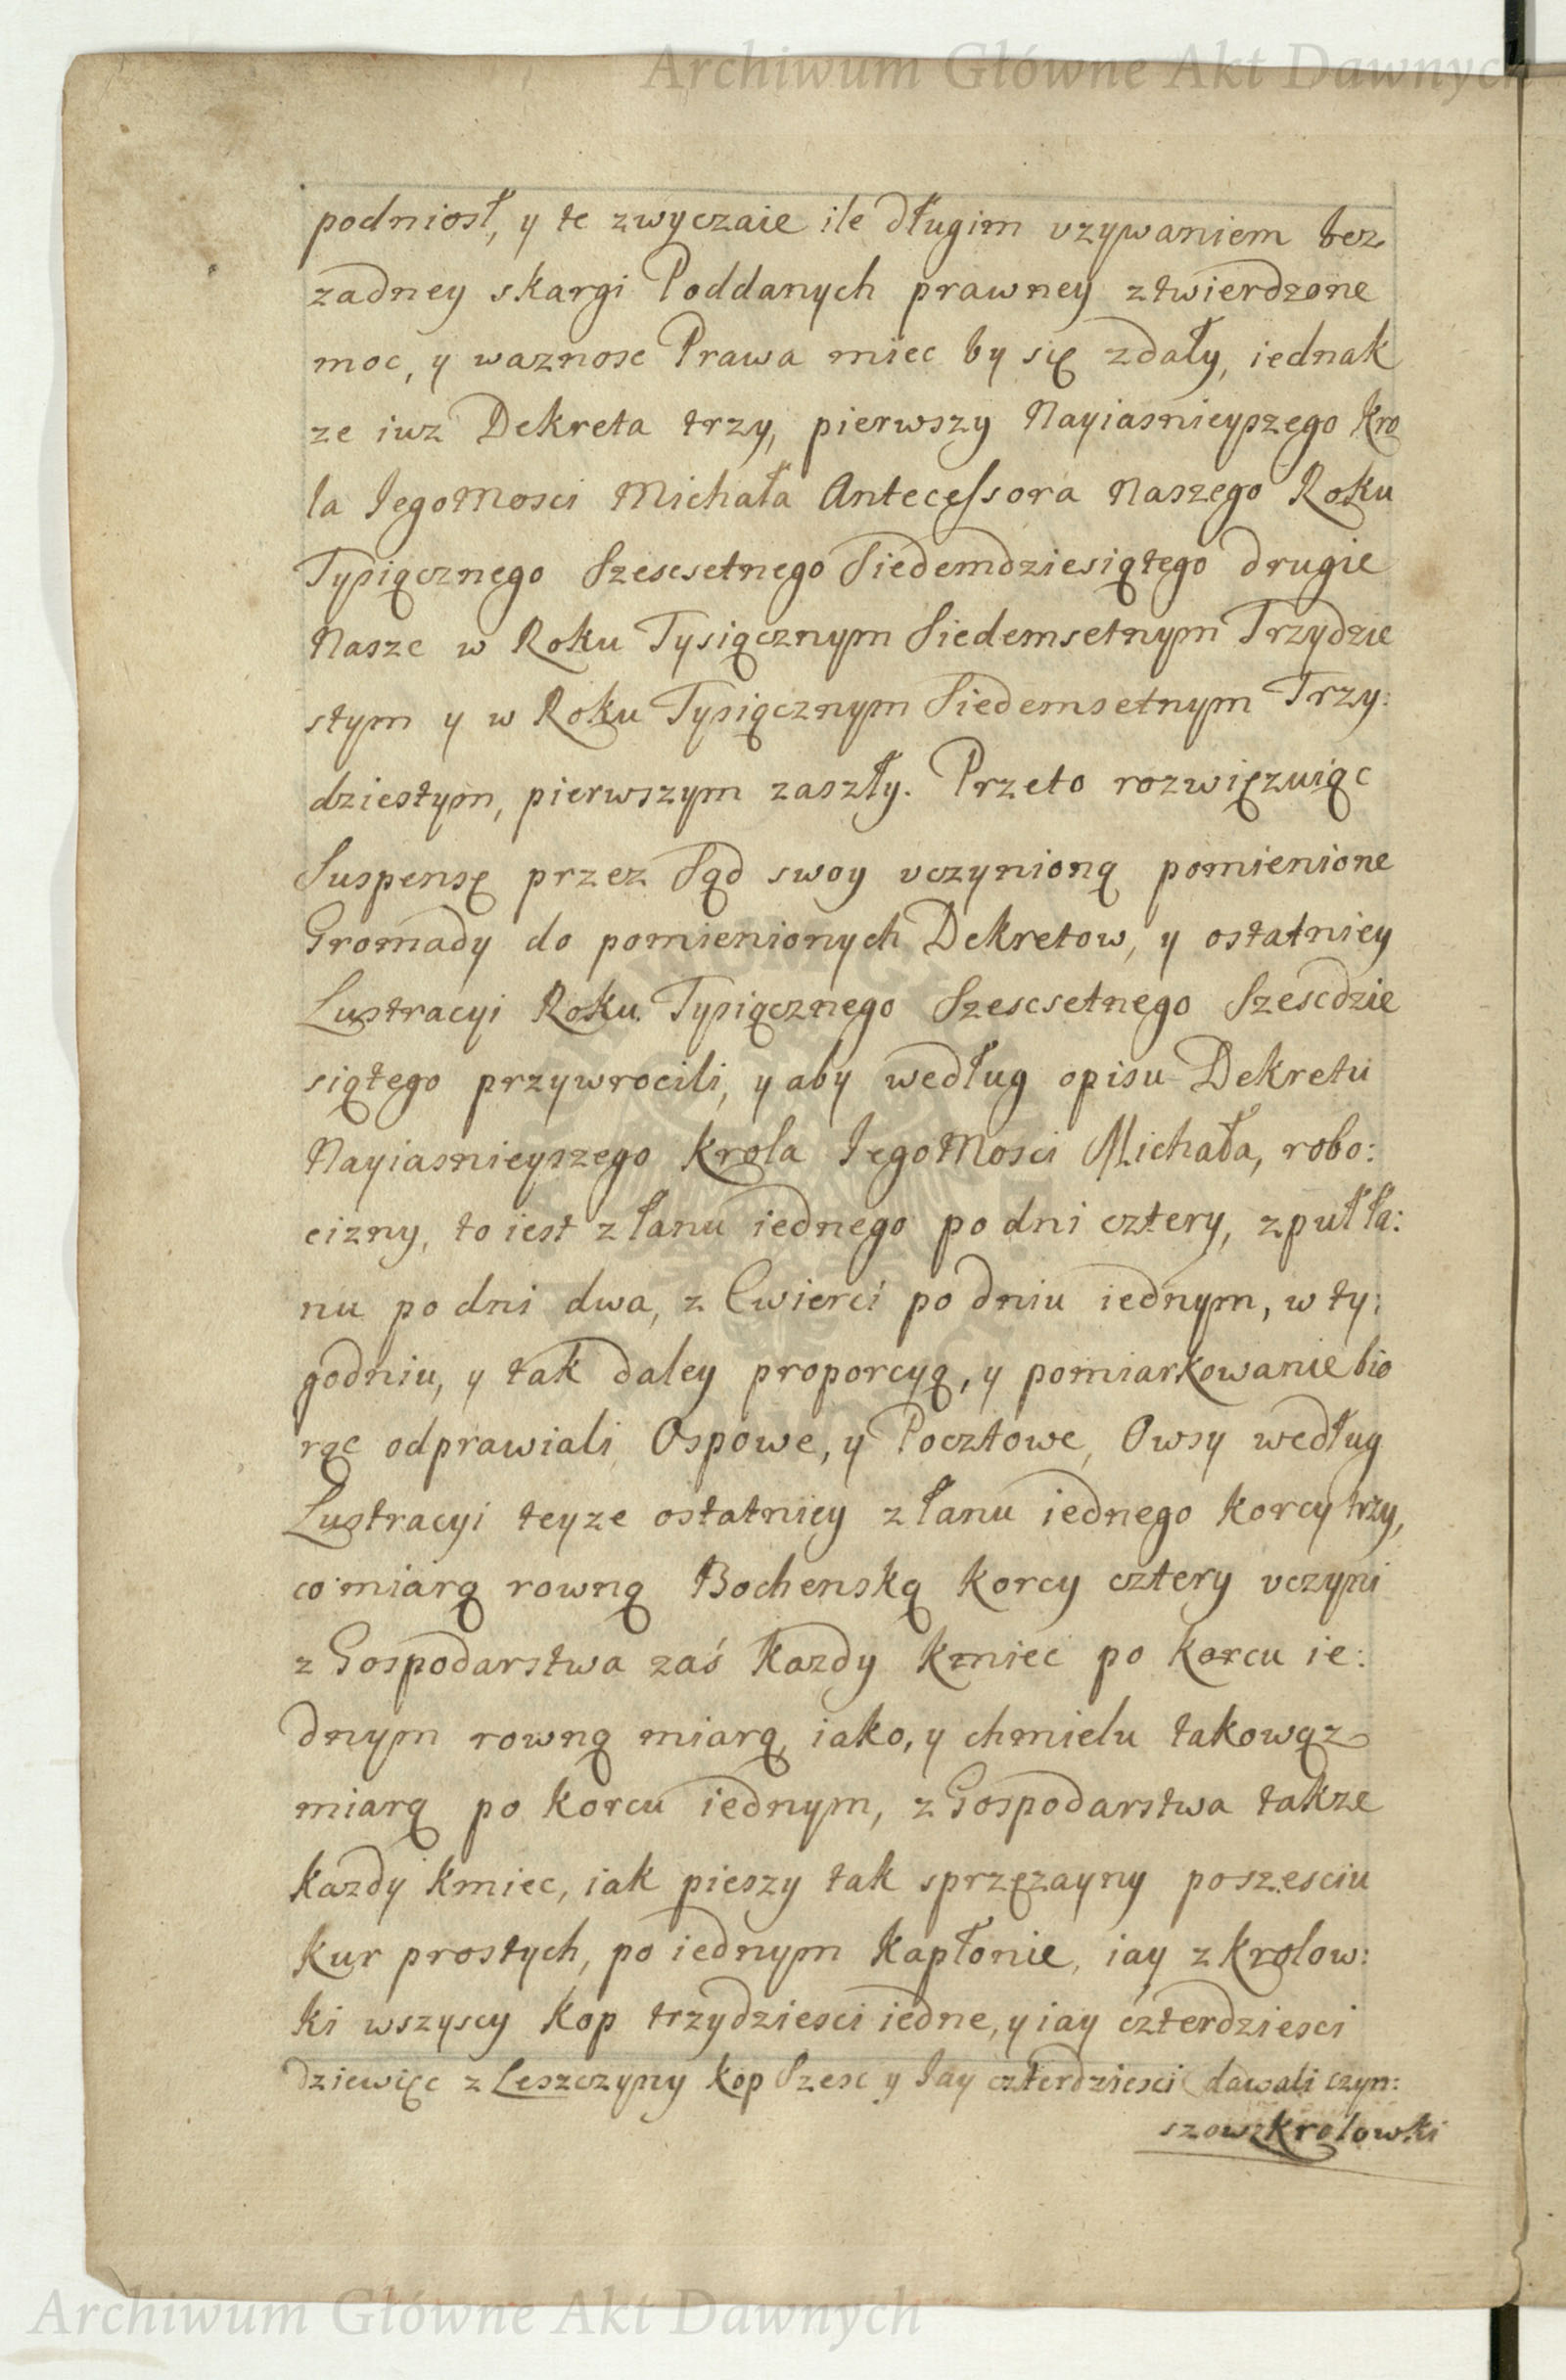 Archiwum Główne Akt Dawnych
podniosł, y te zwyczaie ile długim vzywaniem bez
zadney skargi Poddanych prawney ztwierdzone
moc, y waznosc Prawa miec by się zdały, iednak
ze iuz Dekreta trzy, pierwszy Nayiasnieyszego Kro
la JegoMosci Michała Antecessora Naszego Roku
Tysiącznego Szescsetnego Siedemdziesiątego drugie
Nasze w Roku Tysiącznym Siedemsetnym Trzydzie
stym y w Roku Tysiącznym Siedemsetnym Trzy:
dziestym, pierwszym zaszły. Przeto rozwięzuiąc
Suspensę przez Sąd swoy vczynioną pomienione
Gromady do pomienionych Dekretow, y ostatniey
Lustracyi Roku Tysiącznego Szescsetnego Szescdzie
siątego przywrocili, y aby według opisu Dekretu
Nayiasnieyszego Krola JegoMosci Michała, robo:
cizny, to iest z łanu iednego po dni cztery, z puł ła:
nu po dni dwa, z Cwierci po dniu iednym, w ty:
godniu, y tak daley proporcyą, y pomiarkowanie bio
rąc odprawiali, Ospowe, y Pocztowe, Owsy według
Lustracyi teyze ostatniey z łanu iednego korcy trzy,
co miarą rowną Bochenską korcy cztery vczyni
z Gospodarstwa zaś kazdy kmiec po korcu ie:
dnym rowną miarą, iako, y chmielu takowąz
miarą po korcu iednym, z Gospodarstwa takze
kazdy kmiec, iak pieszy tak sprzęzayny po szesciu
kur prostych, po iednym kapłonie, iay z krolow:
ki wszyscy kop trzydziesci iedne, y iay czterdziesci
dziewięc z Leszczyny kop Szesc y Jay czterdziesci dawali czyn:
szow z Krolowki
Archiwum Główne Akt Dawnych